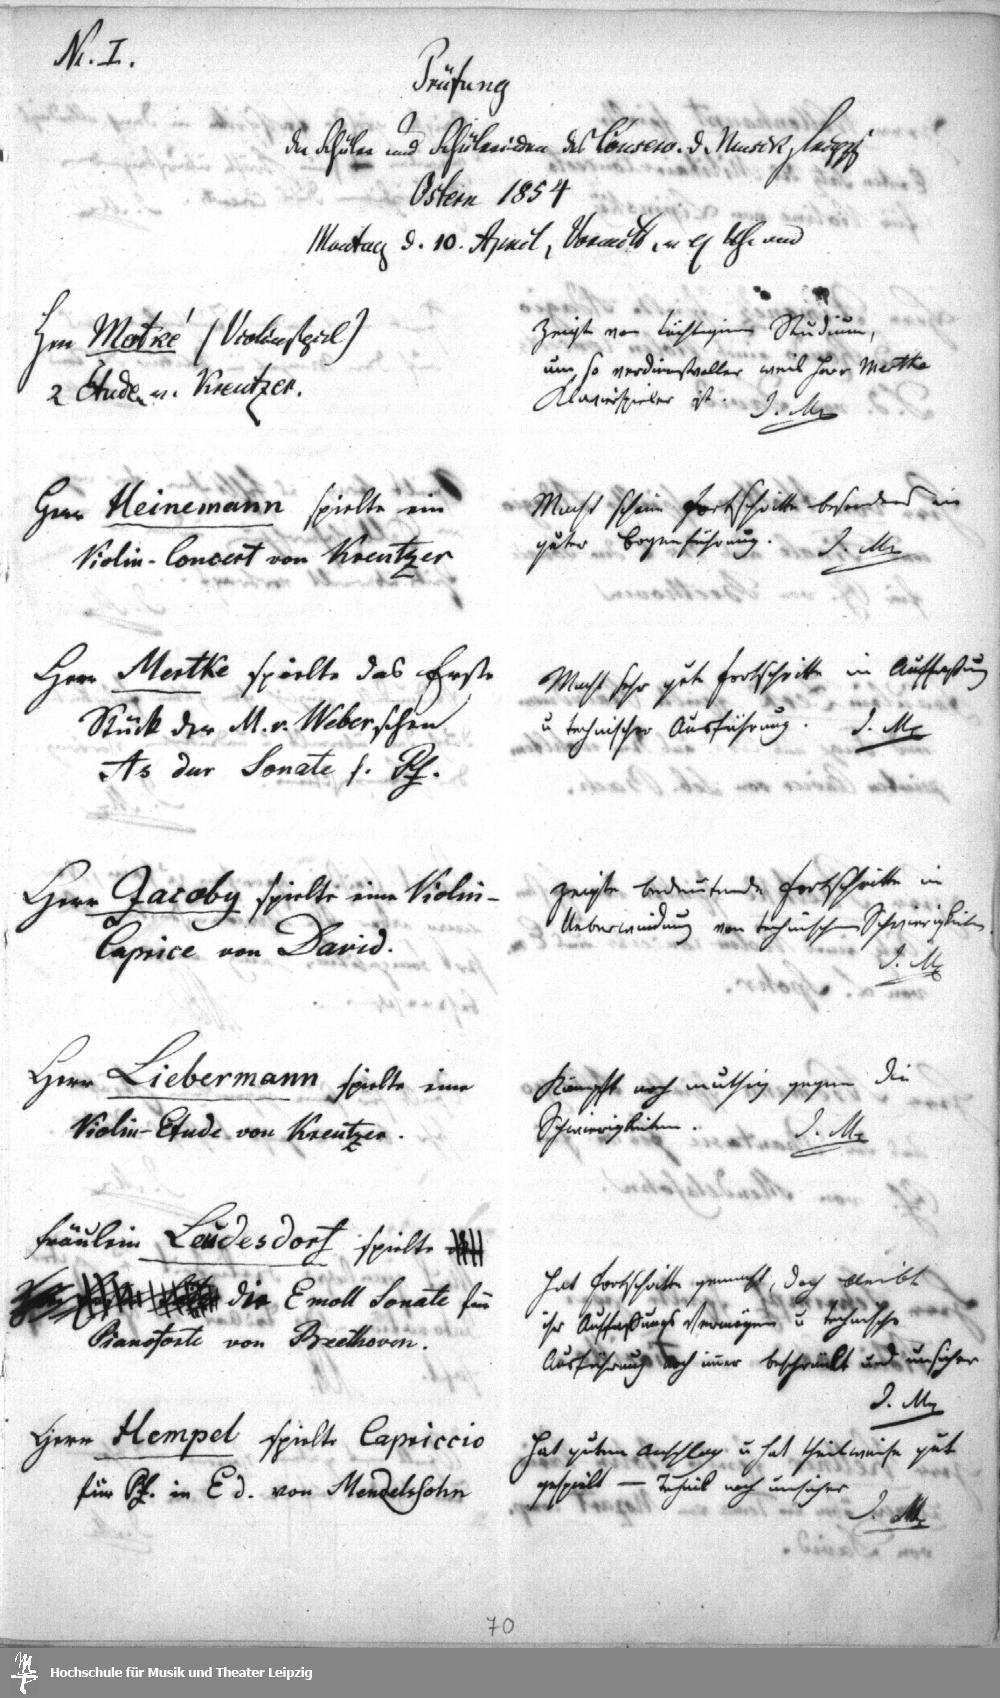 Nr. I.
Prüfung
der Schüler und Schülerinnen des Conserv. d. Musik z. Leipzig
Ostern 1854
Montag d. 10. April, Vormitt. v. 9 Uhr an
Herr Motké (Violinspiel)
2 Etuden v. Kreutzer.
Zeigt von tüchtigem Studium,
um so verdienstvoller weil Herr Mertke
Klavierspieler ist. I. M.
Herr Heinemann spielte ein
Violin-Concert von Kreutzer
Macht schöne Fortschritte besonders in
guter Bogenführung. I. M.
Herr Mertke spielte das Erste
Stück der M. v. Weber'schen
As dur Sonate f. Pf.
Macht sehr gute Fortschritte in Auffaßung
u technischer Ausführung. I. M.
Herr Jacoby spielte eine Violin-
Caprice von David.
Zeigte bedeutende Fortschritte in
Ueberwindung von technischen Schwierigkeiten.
I. M.
Herr Liebermann spielte eine
Violin-Etude von Kreutzer.
Kämpft noch muthig gegen die
Schwierigkeiten. I. M.
Fräulein Leudesdorf spielte
die E moll Sonate für
Pianoforte von Beethoven.
Hat Fortschritte gemacht, doch bleibt
ihr Auffaßungs Vermögen u technische
Ausführung noch immer beschränkt und unsicher
I. M.
Herr Hempel spielte Capriccio
für Pf. in E d. von Mendelssohn
Hat guten Anschlag u hat theilweise gut
gespielt — Technik noch unsicher
I. M.
70
Hochschule für Musik und Theater Leipzig